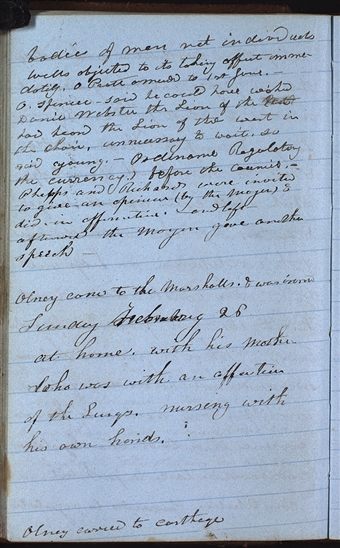 bodies of men not individuals
wells objected to its taking effect imme
diately, O Pratt amended to 1st June. -
O. Spencer - said he could have wished
Daniel Webster the Lion of the
had heard the Lion of the west in
the chair, unnecessary to wait. so
said young. - Ordinance Regulating
the currency, before the council -
Phelps and Richards were invited
to give an opinion (by the Mayor) &
did in affirmative. - and left
afterward the Mayor gave another
speech
Olney come to the Marshalls. & was
Sunday February 26
at home. with his Mother
who was with an affection
of the Lungs. nursing with
his own hands.
Olney carried to carthage